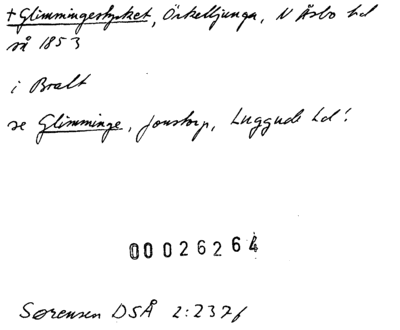 + Glimmingestycket, Örkelljunga, N Åsbo hd
så 1853
i Bralt
se Glimminge, Jonstorp, Luggude hd!
00026264
Sørensen DSÅ 2:237f